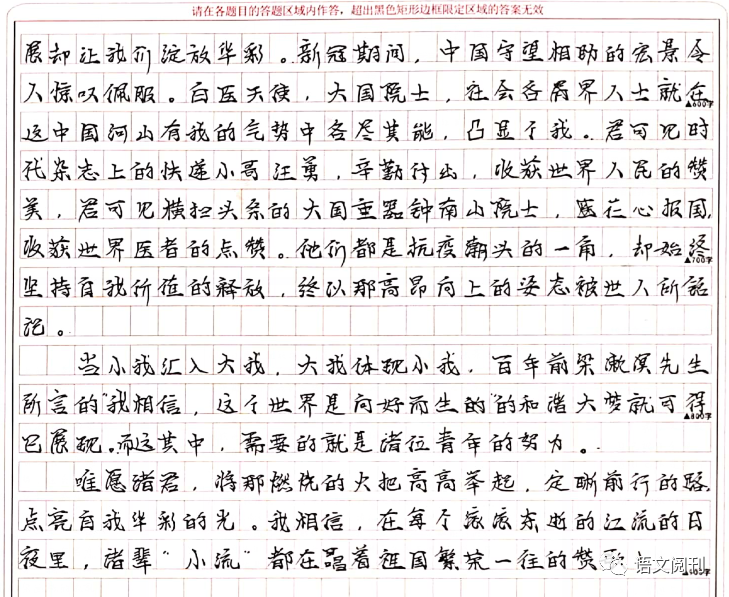 请在各题目的答题区域内作答，超出黑色矩形边框限定区域的答案无效
展却让我们绽放华彩。新冠期间，中国守望相助的宏景令
人惊叹佩服。白医天使，大国院士，社会各界人士就在
▲600字
这中国河山有我的气势中各尽其能，凸显个我。君可见时
代杂志上的快递小哥汪勇，辛勤付出，收获世界人民的赞
美，君可见横扫头条的大国重器钟南山院士，心报国，
收获世界医者的点赞。他们都是抗疫潮头的一角，却始终
▲700字
坚持自我价值的释放，终以那高昂向上的姿态被世人所铭
记。
当小我汇入大我，大我体现小我，百年前梁漱溟先生
所言的“我相信，这个世界是向好而生的”的和谐大梦就可得
▲800字
已展现。而这其中，需要的就是诸位青年的努力。
唯愿诸君，将那燃烧的火把高高举起，定晰前行的路，
点亮自我华彩的光。我相信，在每个滚滚东逝的江流的日
夜里，诸辈“小流”都在唱着祖国繁荣一往的赞
语文阅刊